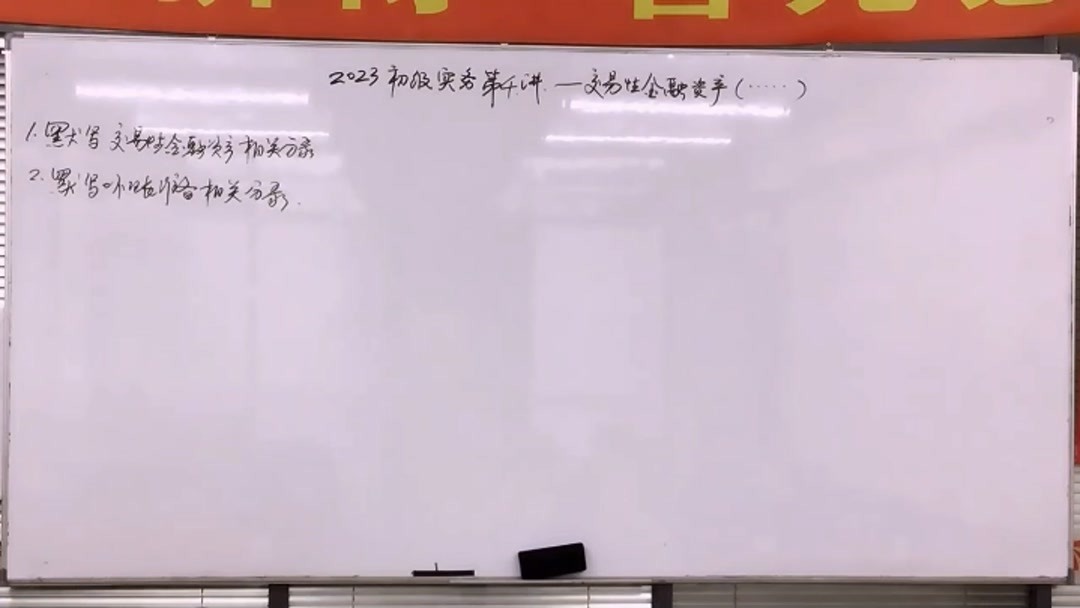 2023初级实务第 讲 — 交易性金融资产(……)
1. 默写交易性金融资产相关分录
2. 默写坏账准备相关分录.